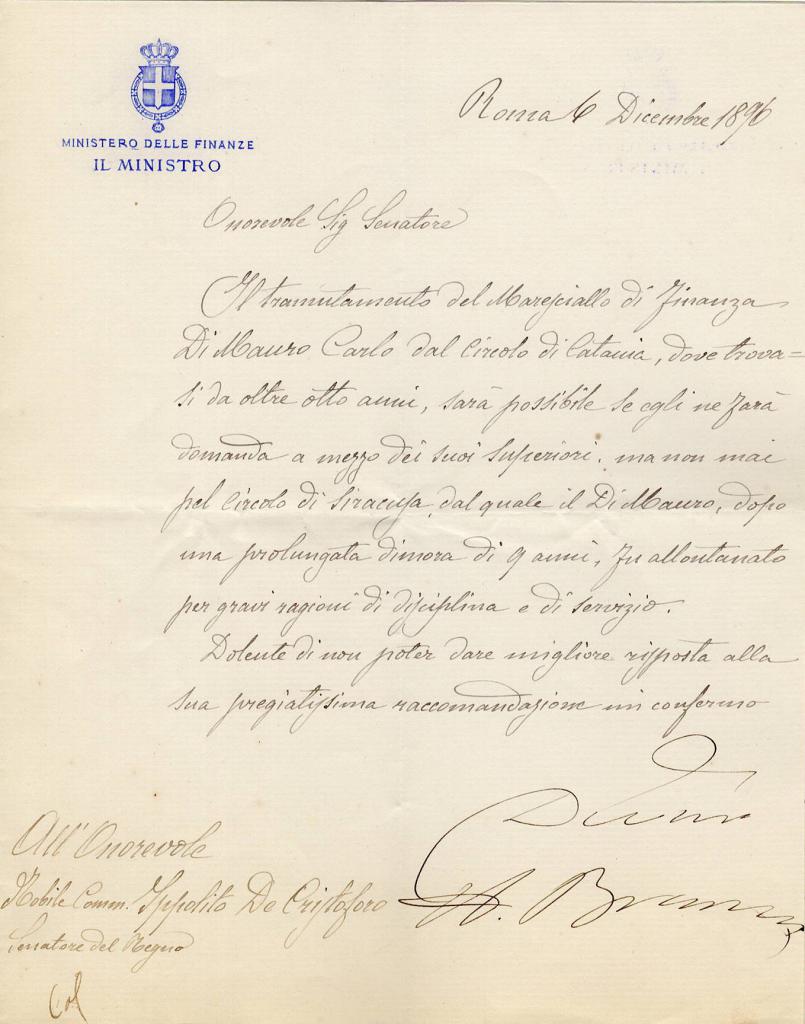 MINISTERO DELLE FINANZE
IL MINISTRO
Roma 6 Dicembre 1896
Onorevole Sig Senatore
Il tramutamento del Maresciallo di Finanza
Di Mauro Carlo dal Circolo di Catania, dove trova=
si da oltre otto anni, sarà possibile se egli ne farà
domanda a mezzo dei suoi superiori. ma non mai
pel Circolo di Siracusa, dal quale il Di Mauro, dopo
una prolungata dimora di 9 anni, fu allontanato
per gravi ragioni di disciplina e di servizio.
Dolente di non poter dare migliore risposta alla
sua pregiatissima raccomandazione mi confermo
A. Branca
All'Onorevole
Nobile Comm. Ippolito De Cristoforo
Senatore del Regno